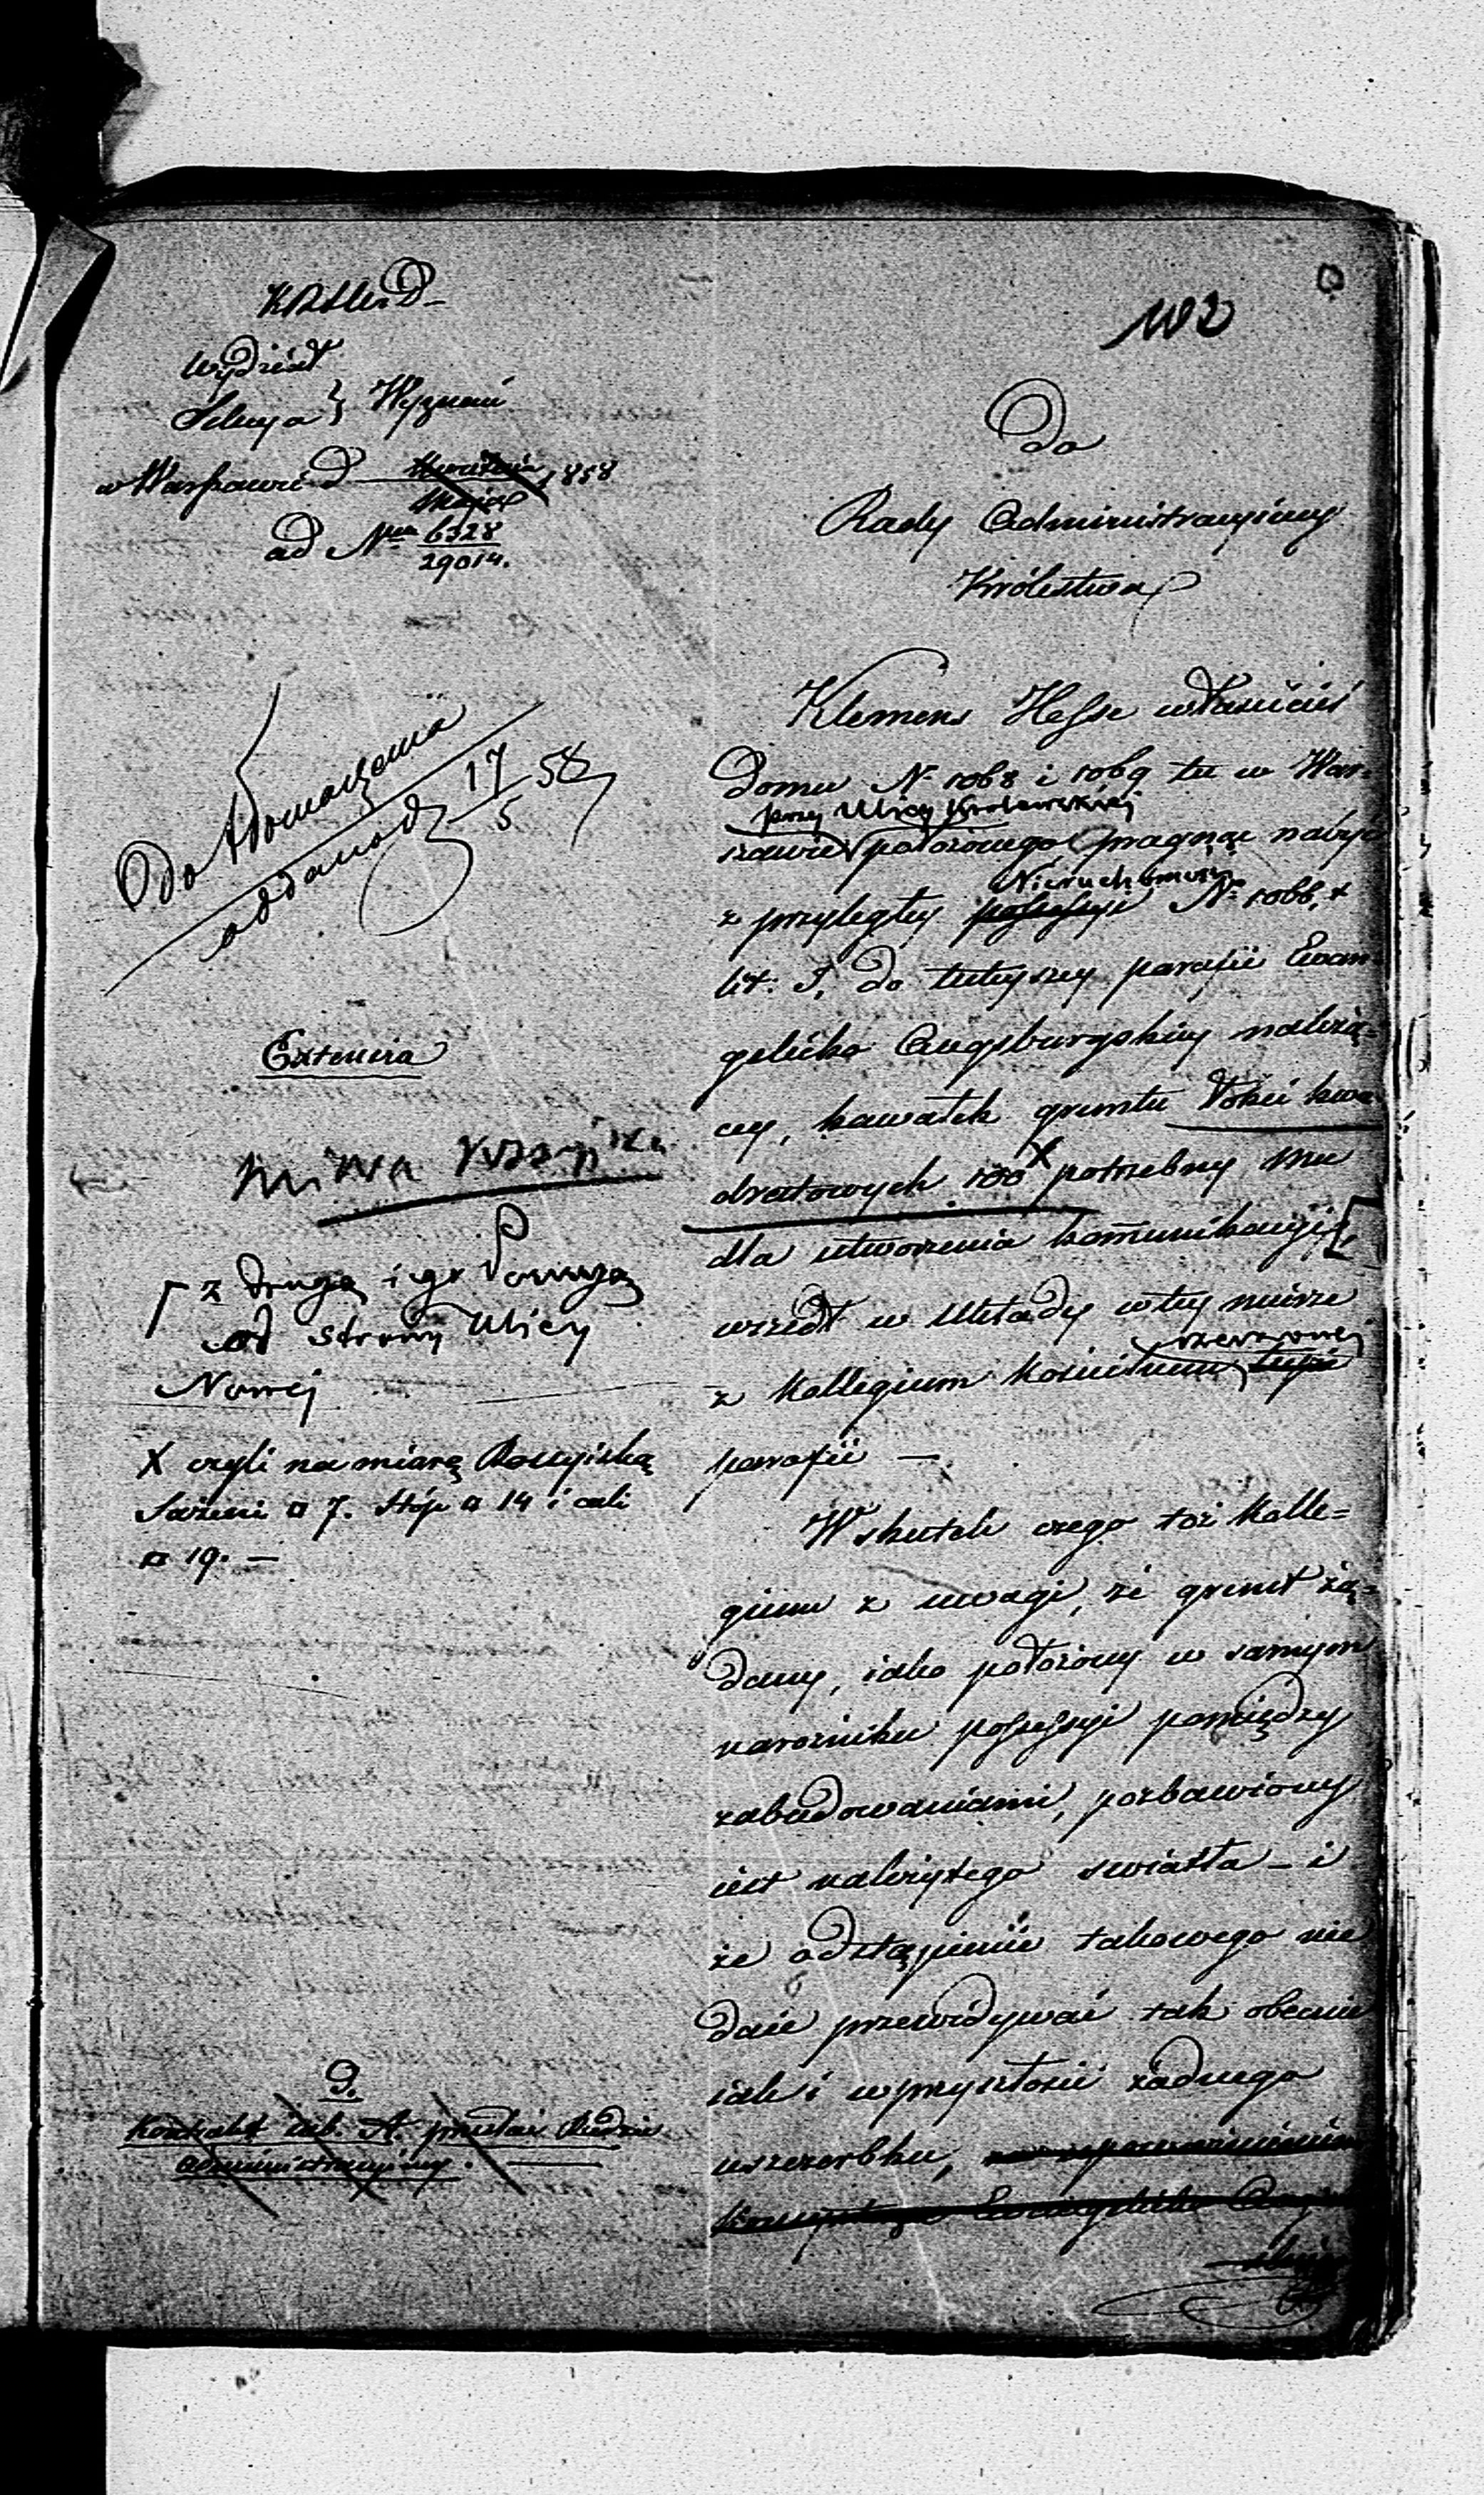 Wydział
Sekcya } Wyznań
w Warszawie D Kwietnia / Maja 1858
ad Nrm 6328 / 29014.
Do tłomaczenia
oddano d 17/5 58
Extensia
Γ z drugą iego Possessyą
od strony Ulicy
Nowej
X czyli na miarę Rossyiską
Sążeni □ 7. stóp □ 14 i cali
□ 19. —
D.
Kontrakt sub. A. przesłać Radzie
Administracyiney. —
102
Do
Rady Administracyiney
Królestwa
Klemens Hesse właściciel
Domu N. 1068 i 1069 tu w War=
przy Ulicy Królewskiej
szawie położonego pragnąc nabyć
Nieruchomości
z przyległey possessyi N. 1066,
lit. I, do tuteyszey parafii Ewan=
gelicko Augsburgskiey należą=
cey, kawałek gruntu łokci kwa=
dratowych 100 X potrzebny mu
dla utworzenia komunikacyi Γ,
wszedł w Układy w tey mierze
rzeczonej
z Kollegium Kościelnem, teyże
parafii —
W skutek czego toż Kolle=
gium z uwagi, że grunt żą=
dany, iako położony w samym
narożniku possessyi pomiędzy
zabudowaniami, pozbawiony
iest należytego swiatła – i
że odstąpienie takowego nie
daie przewidywać tak obecnie
iak i w przyszłości żadnego
uszczerbku,